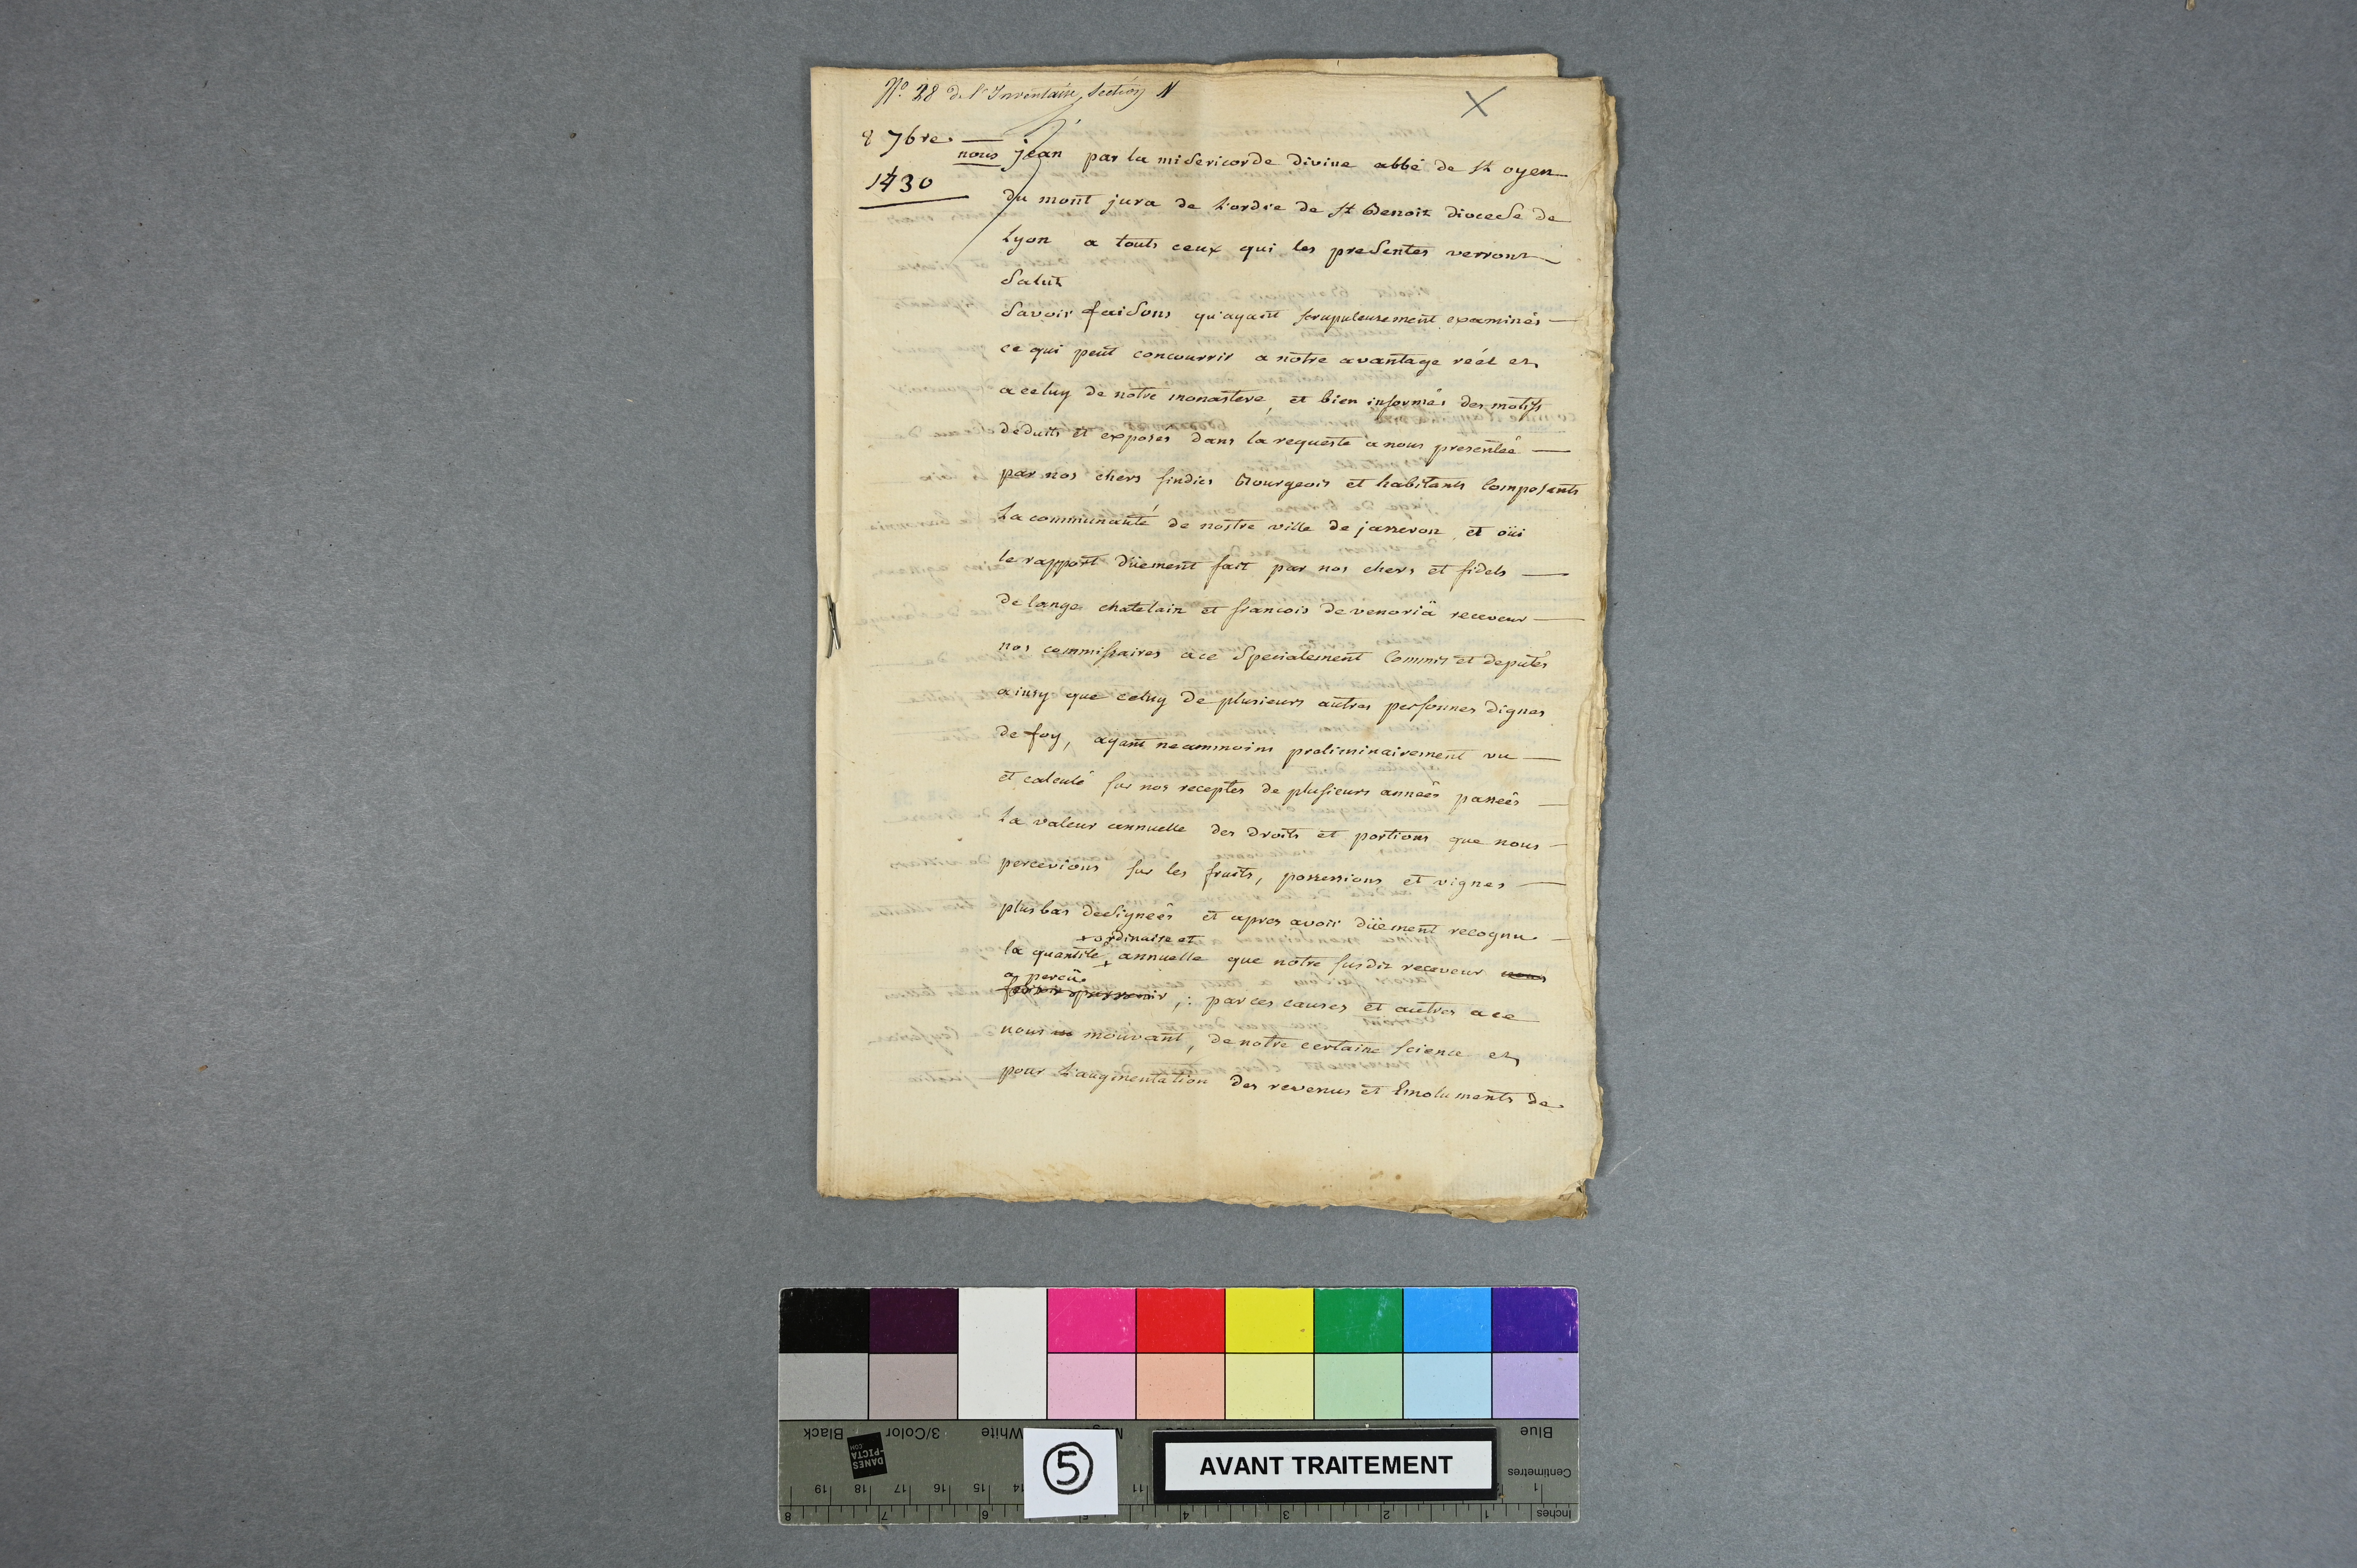 N.º 28 de l'Inventaire, Section N
8 7bre
1430
nous jean par la misericorde divine abbé de St oyen
du mont jura de L'ordre de St Benoit diocese de
Lyon a touts ceux qui les presentes verront
Salut
Savoir faisons qu'ayant scrupuleusement examinés
ce qui peut concourrir a notre avantage réél et
a celuy de notre monastere, et bien informés des motifs
deduits et exposés dans la requeste a nous presentéé
par nos chers sindics Bourgeois et habitants Composents
La communauté de nostre ville de jasseron, et oüi
le rapport düement fait par nos chers et fidels
de lange chatelain et francois de venoriä receveur
nos commissaires a ce Specialement Commis et deputés
ainsy que celuy de plusieurs autres personnes dignes
de foy, ayant neammoins preliminairement vu
et calculé sur nos receptes de plusieurs annéés passéés
La valeur annuelle des droits et portions que nous
percevions sur les fruits, possessions et vignes
plus bas designéés et apres avoir düement recognu
+ ordinaire et
la quantité + annuelle que notre susdit receveur nous
a percü
,: par ces causes et autres a ce
nous mouvant, de notre certaine science et
pour L'augmentation des revenus et Emoluments de
Blue
White
3/Color
Black
DANES
-PICTA
.COM
5
AVANT TRAITEMENT
Centimetres
Inches
19 18 17 16 15 14 11 1
8 7 6 5 4 3 2 1